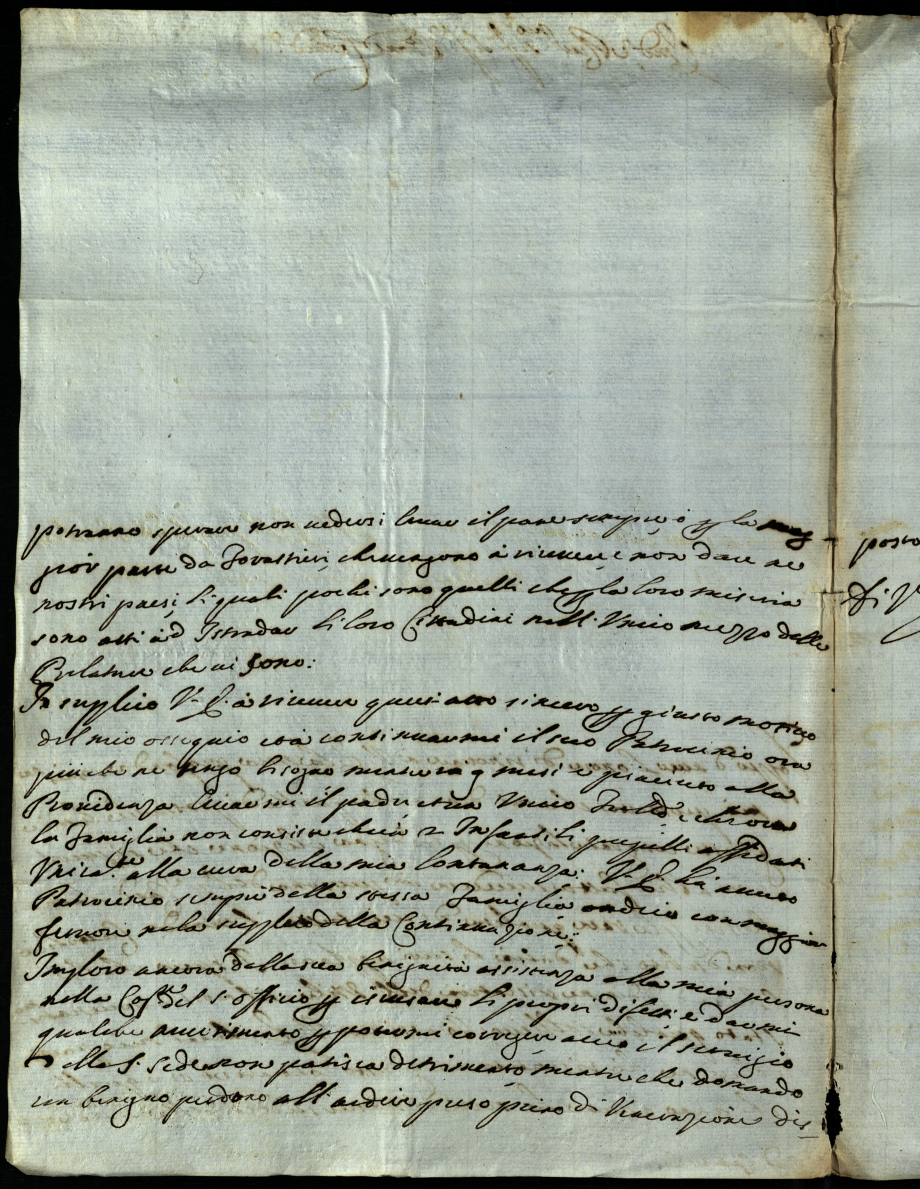 potranno sperare non vedersi levare il pane sempre, ò p la mag
gior parte da Forastieri, che vengono à vivere, e non dare ne
nostri paesi, li quali pochi sono quelli che p la loro miseria
sono atti ad Istradar li loro Cittadini nell'Unico mezzo delle
Prelature che vi sono:
Io supplico V. E. à ricevere quest'atto sincero p giusto motivo
del mio ossequio età continuarmi il suo Patrocinio ora
più che ne tengo bisogno mentre 9 mesi è piaciuto alla
Providenza levarmi il padre, et un Unico che ora
la Famiglia non consiste che in 2 Infantili pupilli affidati
Unicate alla cura della mia lontananza: V. E. hà avuto
Patrocinio sempre della stessa Famiglia, ardisco con maggior
fervore nela supplico della Continuazione:
Imploro ancora dalla sua benignità assistenza alla mia persona
nella del S. Officio p iscusare li propri difetti, e darmi
qualche avvertimento p potermi corregere acciò il servizio
della S. Sede non patisca detrimento, mentre che domando
un benigno perdono all'ardire preso pieno di Venerazione dis-
posto
di V